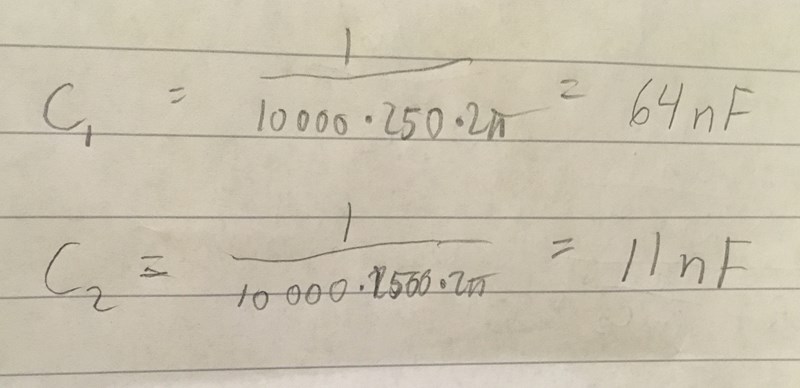 C₁ = 1/(10000·250·2π) = 64nF
C₂ = 1/(10000·1500·2π) = 11nF